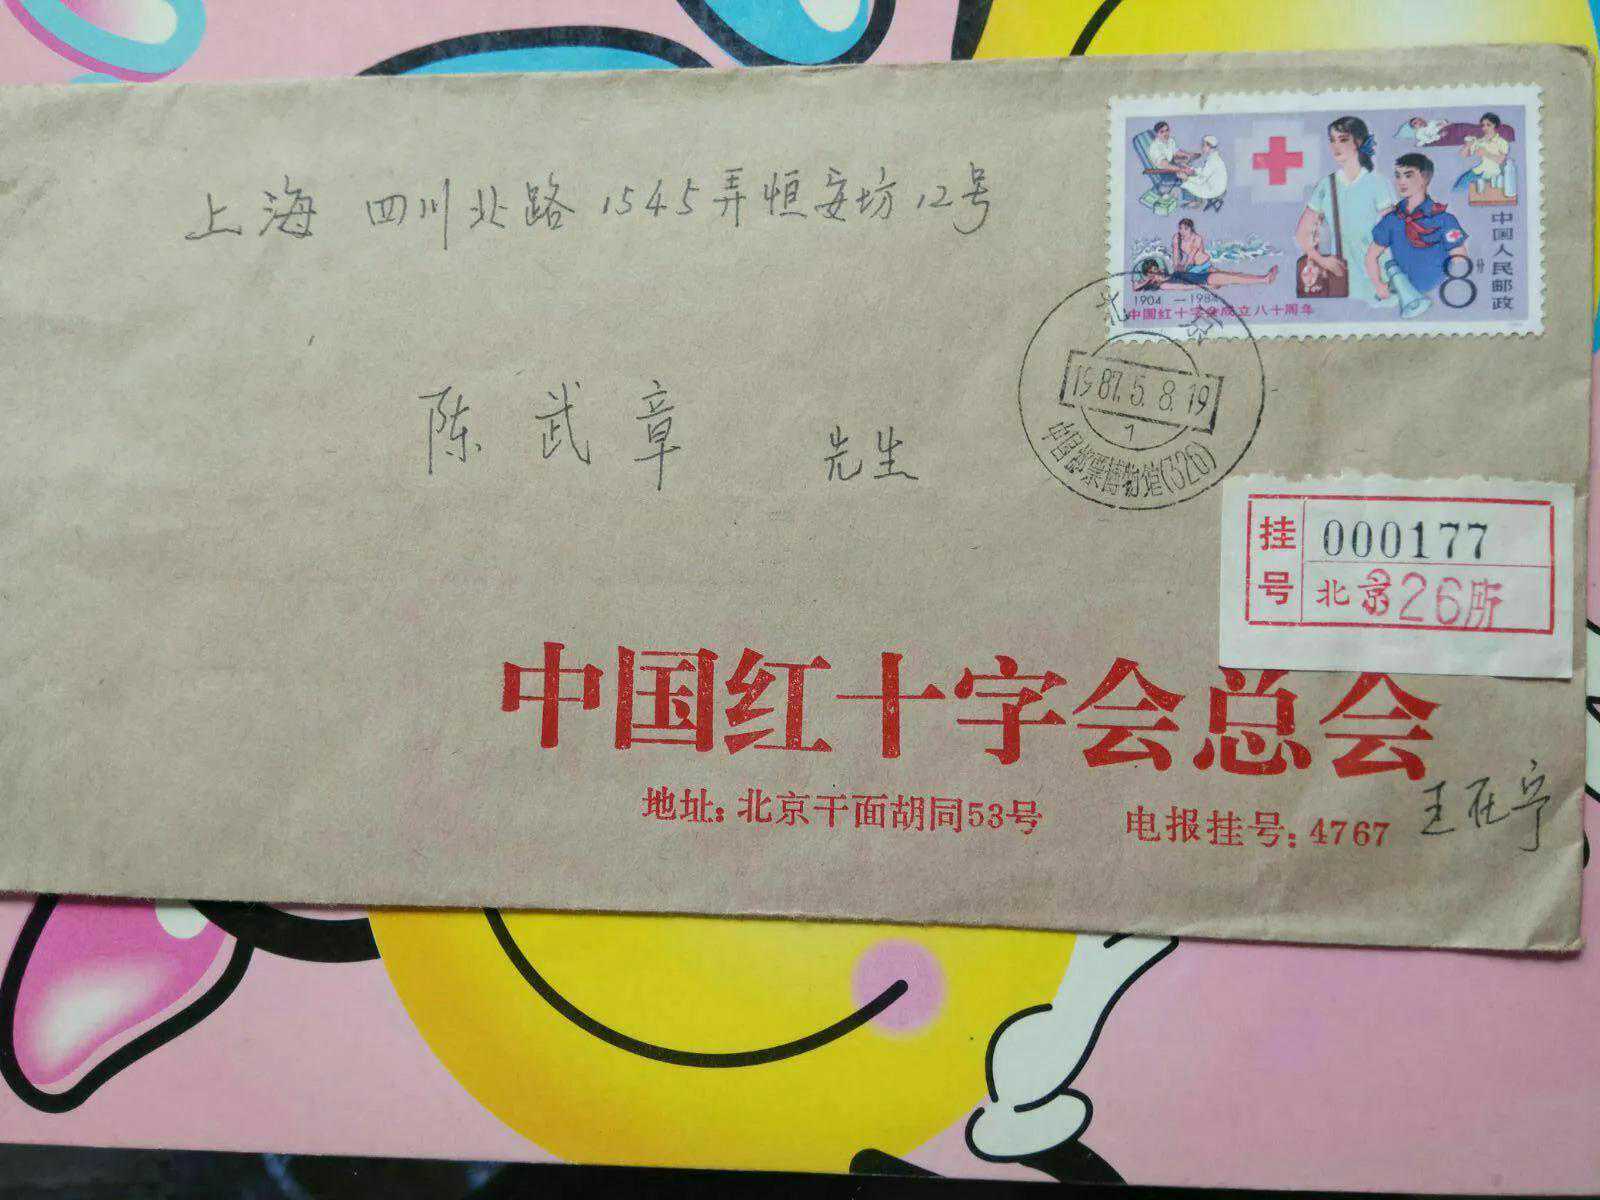 上海 四川北路1545弄恒安坊12号
陈武章 先生
中国人民邮政
8分
1904—1984
中国红十字会成立八十周年
北京
1987.5.8.19
1
中国邮票博物馆(326)
挂号
000177
北京326所
中国红十字会总会
地址:北京干面胡同53号 电报挂号:4767
王在宁